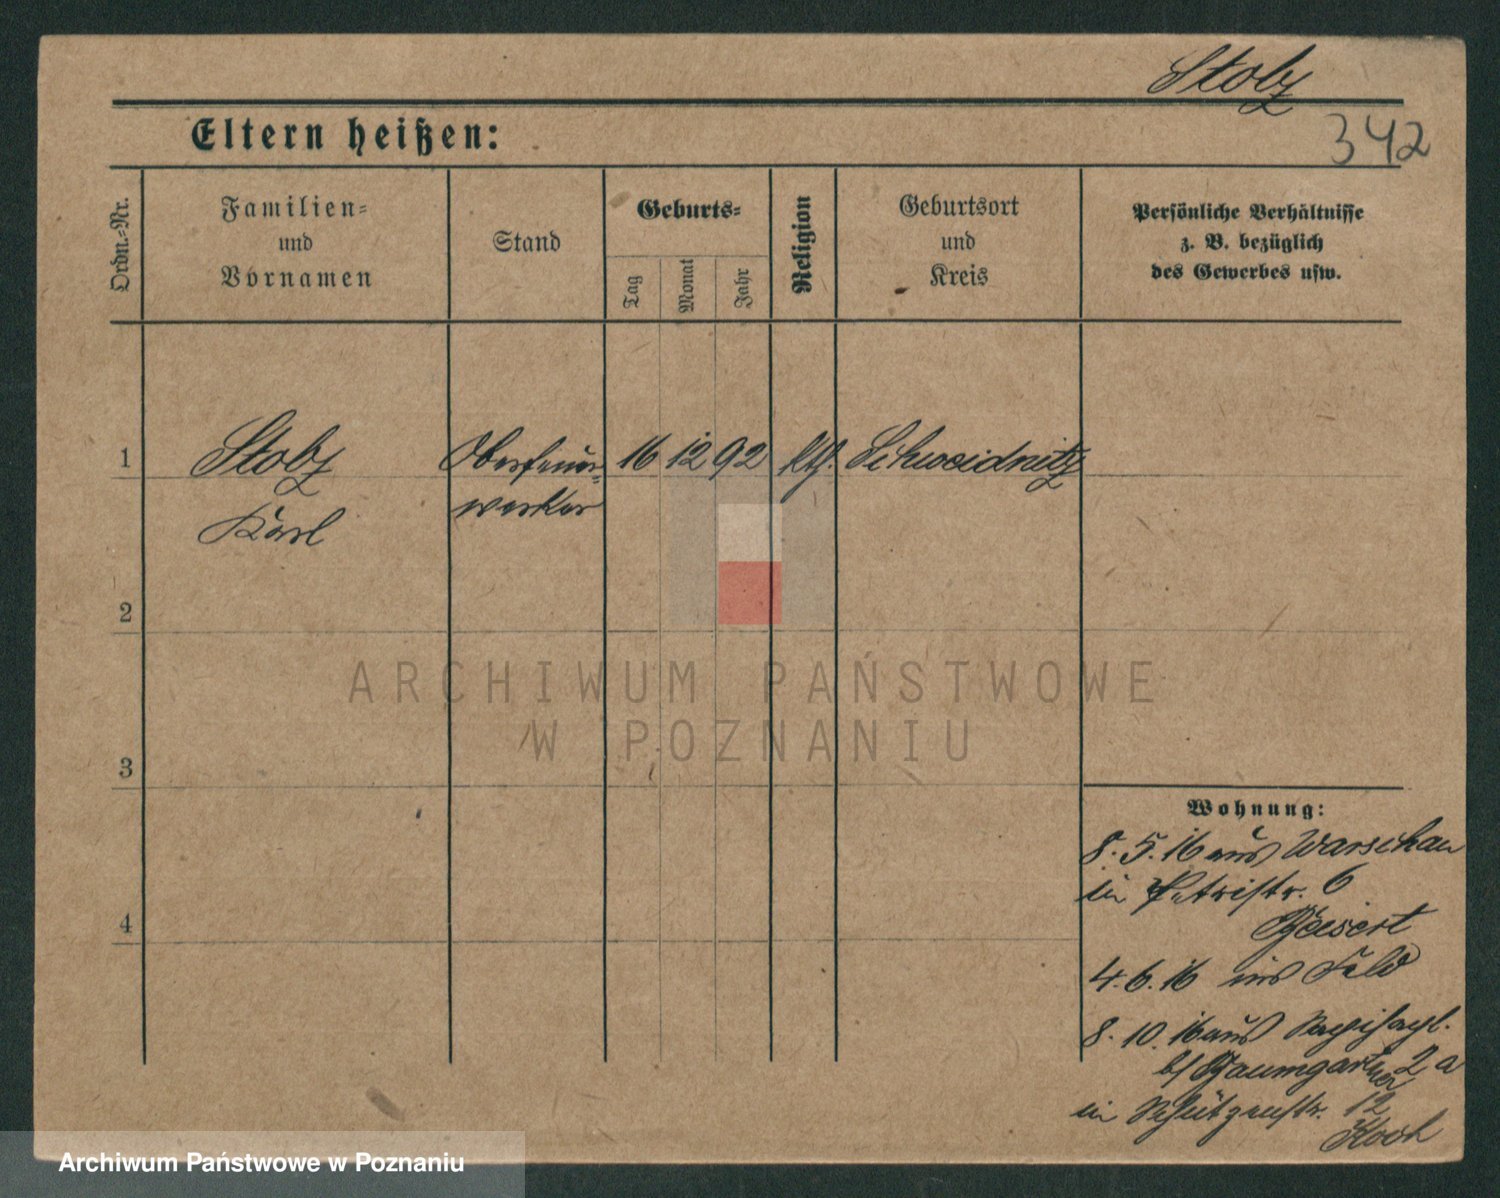 Stolz
342
Eltern heißen:
Ordn.-Nr.
Familien-
und
Vornamen
Stand
Geburts-
Tag
Monat
Jahr
Religion
Geburtsort
und
Kreis
Persönliche Verhältnisse
z. B. bezüglich
des Gewerbes usw.
1 Stolz Oberfeuer- 16 12 92 kth. Schweidnitz
Karl werker
2
3
4
Wohnung:
8. 5. 16 aus Warschau
in Petristr. 6
Beisert
4. 6. 16 ins Feld
8. 10. 16 aus
b/ Baumgartner 2 a
in Schützenstr. 12
Koch
ARCHIWUM PAŃSTWOWE
W POZNANIU
Archiwum Państwowe w Poznaniu